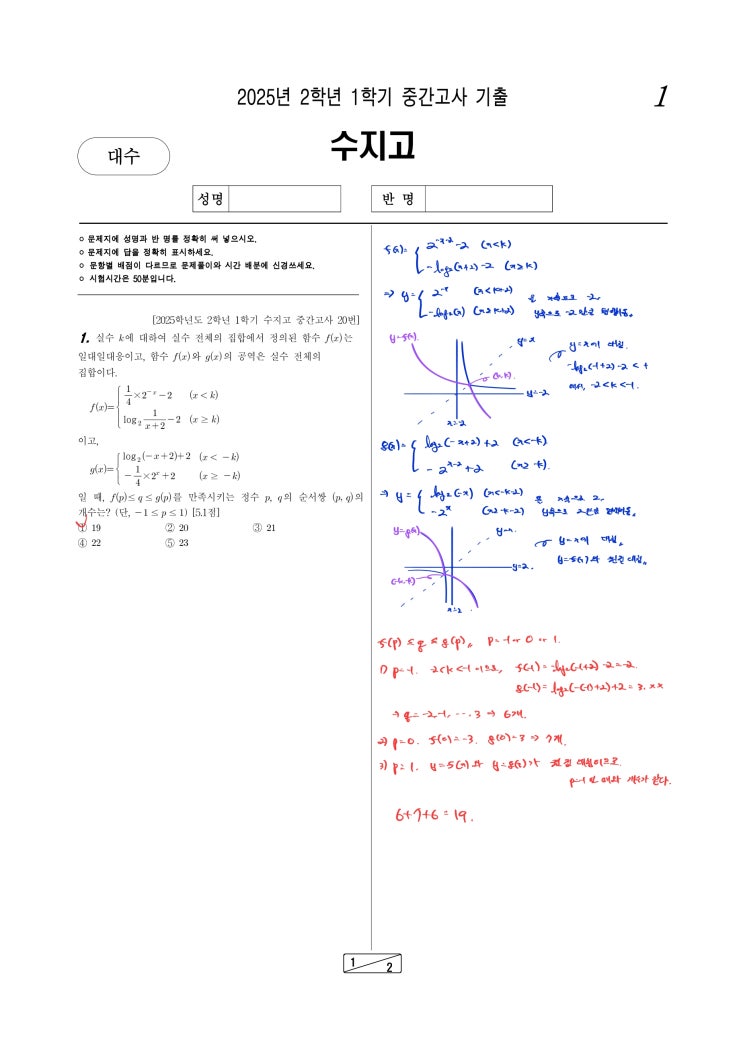 2025년 2학년 1학기 중간고사 기출
1
대수
수지고
성명
반 명
○ 문제지에 성명과 반 명을 정확히 써 넣으시오.
○ 문제지에 답을 정확히 표시하세요.
○ 문항별 배점이 다르므로 문제풀이와 시간 배분에 신경쓰세요.
○ 시험시간은 50분입니다.
[2025학년도 2학년 1학기 수지고 중간고사 20번]
1. 실수 k에 대하여 실수 전체의 집합에서 정의된 함수 f(x)는
일대일대응이고, 함수 f(x)와 g(x)의 공역은 실수 전체의
집합이다.
f(x)={ 1/4×2^{-x}-2 (x<k)
log₂ 1/(x+2) -2 (x≥k)
이고,
g(x)={ log₂(-x+2)+2 (x<-k)
-1/4×2^x+2 (x≥-k)
일 때, f(p)≤q≤g(p)를 만족시키는 정수 p, q의 순서쌍 (p, q)의
개수는? (단, -1≤p≤1) [5.1점]
① 19 ② 20 ③ 21
④ 22 ⑤ 23
f(x)={ 2^{-x-2}-2 (x<k)
-log₂(x+2)-2 (x≥k)
⇒ y={ 2^{-x} (x<k+2) 을 x축으로 -2,
-log₂(x) (x≥k+2) y축으로 -2만큼 평행이동.
y=f(x).
y=x
y=x에 대칭.
-log₂(-1+2)-2<-1
(k,k).
에서, -2<k<-1.
y=-2
x=-2
g(x)={ log₂(-x+2)+2 (x<-k)
-2^{x-2}+2 (x≥-k).
⇒ y={ log₂(-x) (x<-k-2) 을 x축으로 2,
-2^x (x≥-k-2) y축으로 2만큼 평행이동.
y=g(x)
y=x.
y=x에 대칭.
y=f(x)와 원점대칭.
y=2.
(-k,-k)
x=2
f(p)≤q≤g(p), p=-1 or 0 or 1.
1) p=-1. -2<k<-1이므로, f(-1)=-log₂(-1+2)-2=-2.
g(-1)=log₂(-(-1)+2)+2=3.xx
→ q=-2,-1, ... 3 → 6개.
2) p=0. f(0)=-3. g(0)=3 → 7개.
3) p=1. y=f(x)와 y=g(x)가 원점 대칭이므로
p=-1일 때와 개수가 같다.
6+7+6=19.
1
2